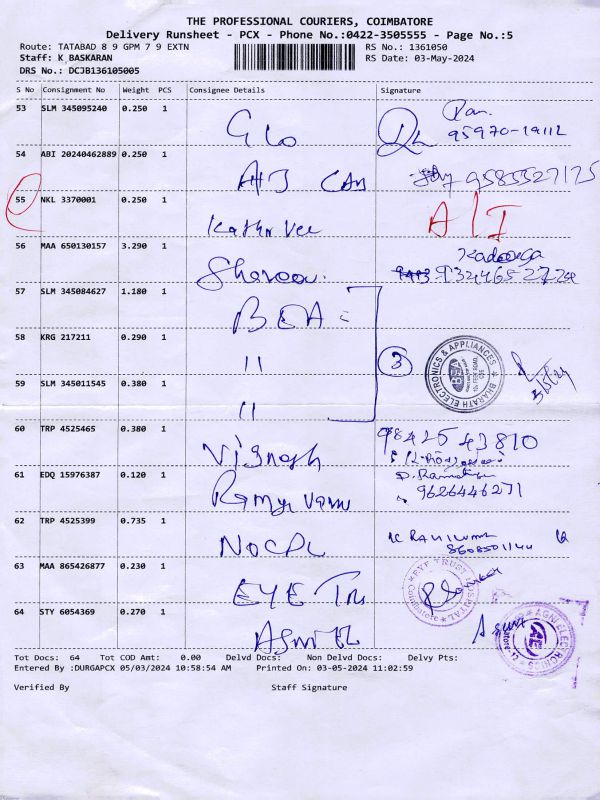 THE PROFESSIONAL COURIERS, COIMBATORE
Delivery Runsheet - PCX - Phone No.:0422-3505555 - Page No.:5
Route: TATABAD 8 9 GPM 7 9 EXTN RS No.: 1361050
Staff: K BASKARAN RS Date: 03-May-2024
DRS No.: DCJB136105005
S No Consignment No Weight PCS Consignee Details Signature
53 SLM 345095240 0.250 1
95970-19112
54 ABI 20240462889 0.250 1
9585527175
55 NKL 3370001 0.250 1
56 MAA 650130157 3.290 1
57 SLM 345084627 1.180 1
BEA =
58 KRG 217211 0.290 1
"
3
BHARATH ELECTRONICS & APPLIANCES
59 SLM 345011545 0.380 1
"
60 TRP 4525465 0.380 1
Vignesh
9842543810
61 EDQ 15976387 0.120 1
9626446271
62 TRP 4525399 0.735 1
8608501144
63 MAA 865426877 0.230 1
EYE
EYE TRUST HOSPITAL
64 STY 6054369 0.270 1
AGNI ELECTRONICS
Tot Docs: 64 Tot COD Amt: 0.00 Delvd Docs: Non Delvd Docs: Delvy Pts:
Entered By :DURGAPCX 05/03/2024 10:58:54 AM Printed On: 03-05-2024 11:02:59
Verified By Staff Signature